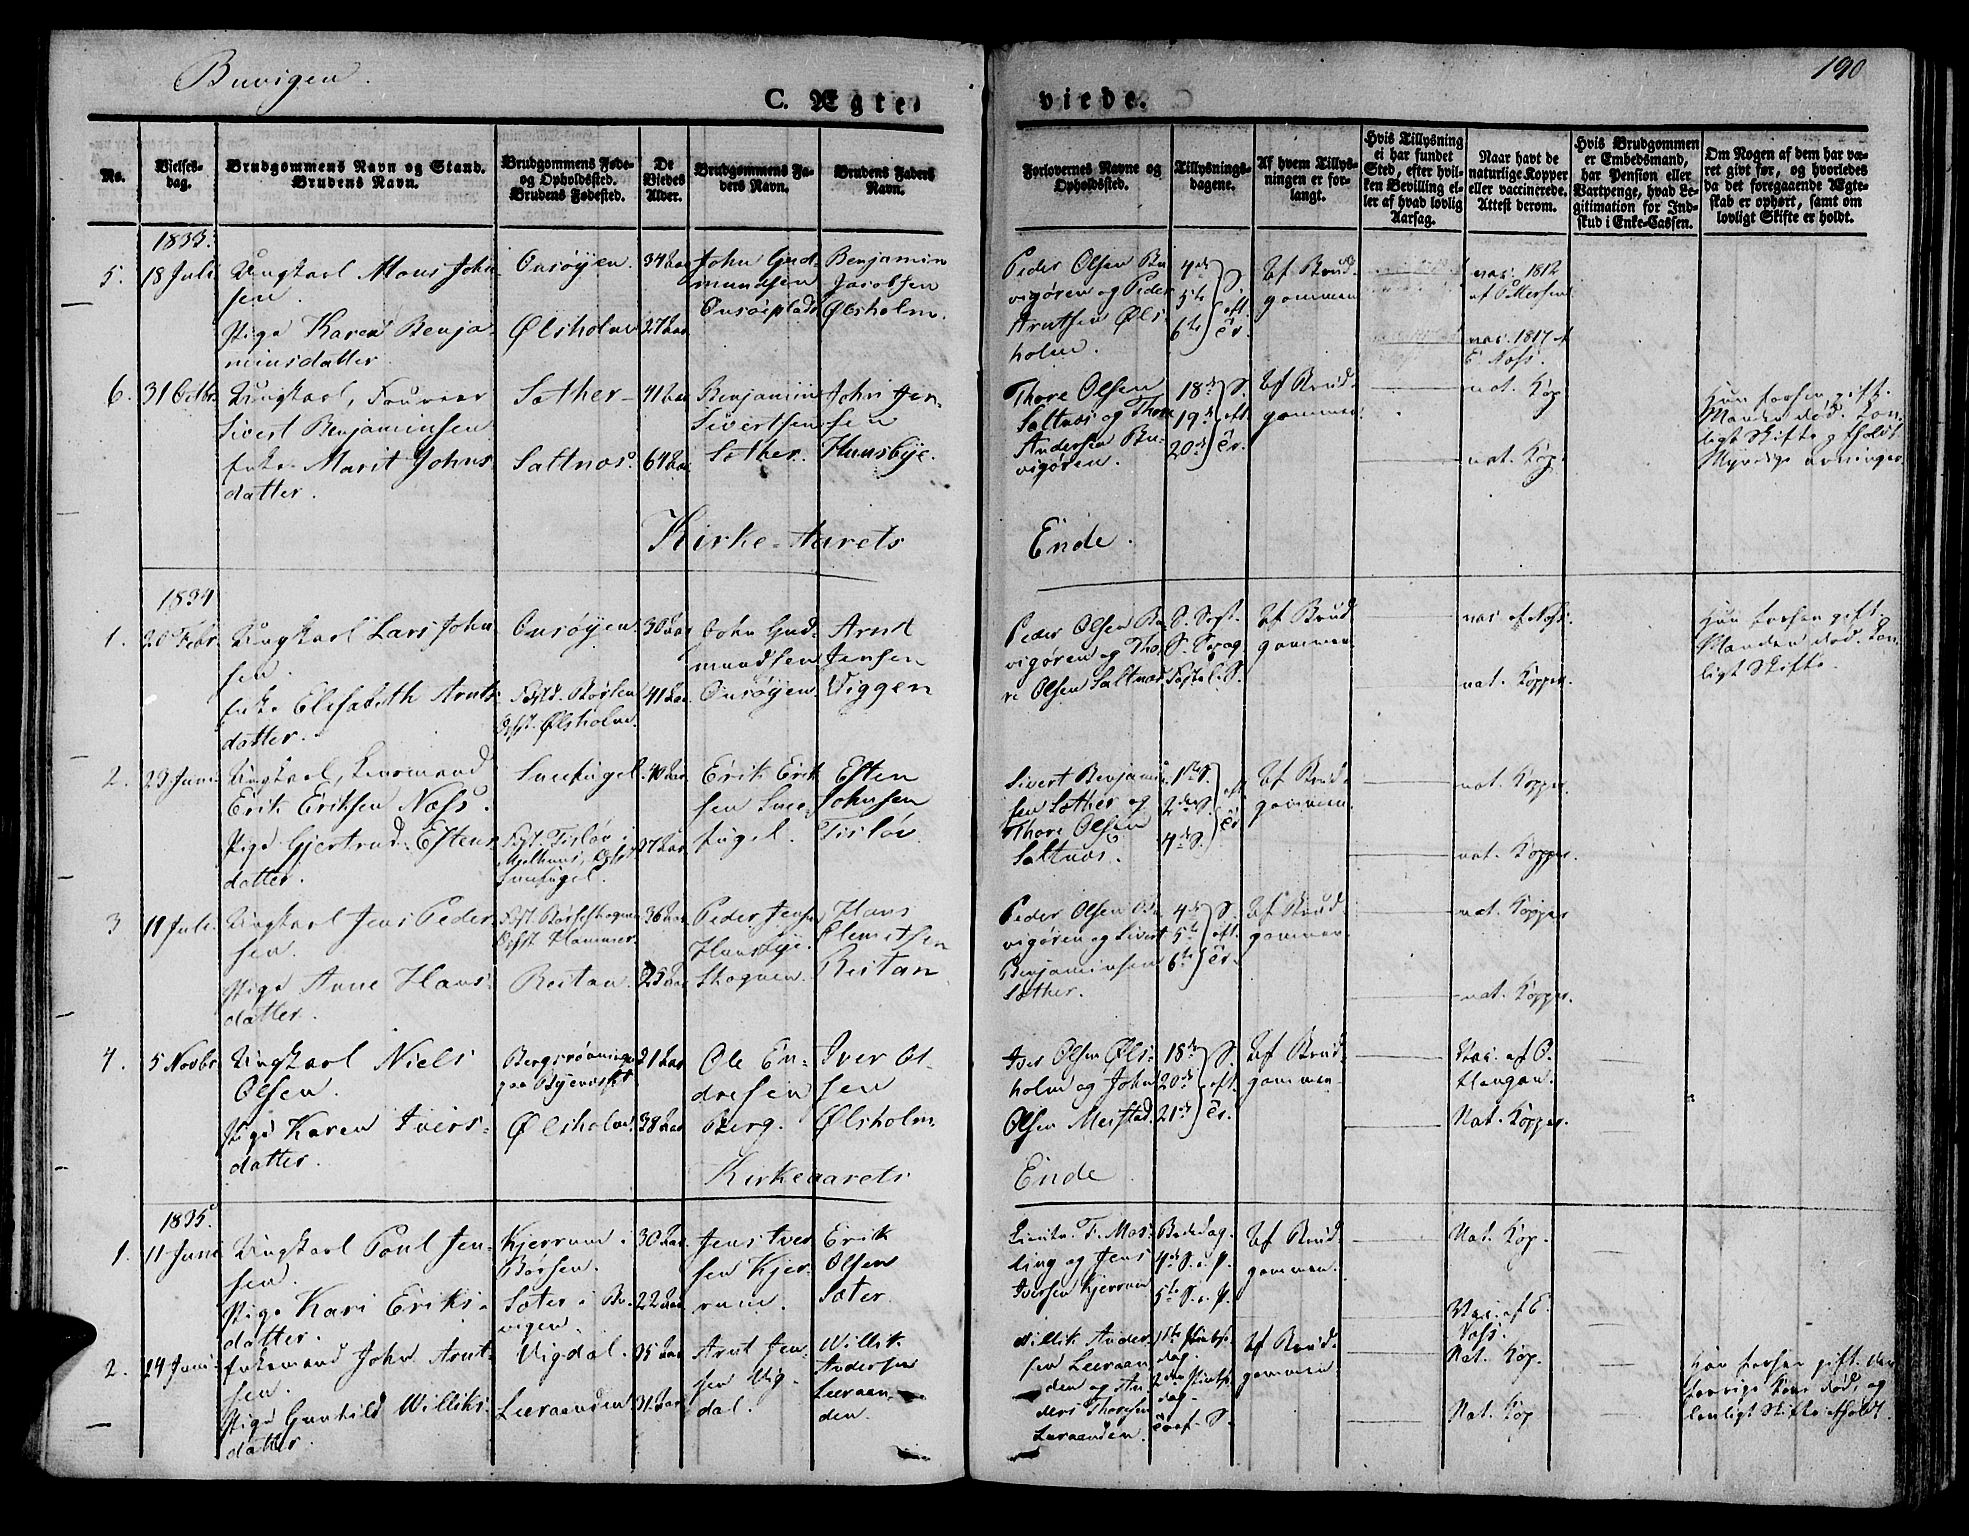 Buvigen.
190
C. Ægte-
viede.
No.
Vielses-
dag.
Brudgommens Navn og Stand.
Brudens Navn.
Brudgommens Føde-
og Opholdssted.
Brudens Fødested.
De
Viedes
Alder.
Brudgommens Fa-
ders Navn.
Brudens Faders
Navn.
Forlovernes Navne og
Opholdssted.
Tillysnings-
dagene.
Af hvem Tillys-
ningen er for-
langt.
Hvis Tillysning
ei har fundet
Sted, efter hvil-
ken Bevilling el-
ler af hvad lovlig
Aarsag.
Naar havt de
naturlige Kopper
eller vaccinerede.
Attest derom.
Hvis Brudgommen
er Embedsmand,
har Pension eller
Vartpenge, hvad Le-
gitimation for Ind-
skud i Enke-Cassen.
Om Nogen af dem har væ-
ret givt før, og hvorledes
da det foregaaende Ægte-
skab er ophørt, samt om
lovligt Skifte er holdt.
1833.
5. 18 Juli Ungkarl Mons John-
sen.
Pige Karen Benja-
minsdatter.
Onsøyen.
Ølsholm
34 Aar
27 Aar
John Gud-
mundsen
Onsøiplads
Benjamin
Jacobsen
Ølsholm.
Peder Olsen Bu-
vigøren og Peder
Arntsen Øls-
holm.
4de
5te
6te
S.
eft.
Tr.
Af Brud-
gommen
vac. 1812
vac. 1817 af
E. Næss.
6. 31 Octbr. Ungkarl, Fourier
Sivert Benjaminsen
Enke Marit Johns-
datter.
Sæther
Saltnæs.
41 Aar
64 Aar
Benjamin
Sivertsen
Sæther.
John Jen-
sen
Hunsbye.
Thore Olsen
Saltnæs og Thore
Andersen Bu-
vigøren.
18de
19de
20de
S.
eft.
Tr.
Af Brud-
gommen
nat. Kop
nat. Kop.
Hun forhen gift.
Manden død. Lov-
ligt Skifte afholdt
Myndige arvinger
Kirke-Aarets
Ende.
1834
1. 20 Febr. Ungkarl Lars John-
sen.
Enke Elisabeth Arnts-
datter.
Onsøyen.
Fødst. Børsen
Opst. Ølsholm.
30 Aar
41 Aar
John Gud-
mundsen
Onsøyen
Arnt
Jensen
Viggen
Peder Olsen Bu-
vigøren og Tho-
re Olsen Saltnæs
Af Brud-
gommen
vac. af Næss.
nat. Kopper.
Hun forhen gift.
Manden død. Lov-
ligt Skifte.
2. 23 Juni Ungkarl, Leensmand
Erik Eriksen Næss.
Pige Gjertrud Estens-
datter.
Snefugl.
Fst. Tisløv i
Melhuus, Opst
Snefugel.
40 Aar
37 Aar
Erik Erik-
sen Sne-
fugel.
Esten
Johnsen
Tisløv.
Sivert Benjamin-
sen Sæther og
Thore Olsen
Saltnæs.
1ste S.
2den S.
4de S.
eft.
Tr.
Af Brud-
gommen.
nat. Kopper.
nat. Kopper.
3 11 Juli. Ungkarl Jens Peder-
sen.
Pige Anne Hans-
datter.
Fst. Børseskognen
Opst Hammer.
Restan.
36 Aar
25 Aar
Peder Jensen
Hunsbye.
Skognen.
Hans
Clemetsen
Restan
Peder Olsen Bu-
vigøren og Sivert
Benjaminsen
Sæther.
4de
5te
6te
S.
eft.
Tr.
Af Brud-
gommen
nat. Kopper
nat. Kopper.
4. 5 Novbr. Ungkarl Niels
Olsen.
Pige Karen Ivers-
datter.
Ølsholm.
31 Aar
38 Aar
Ole En-
dresen
Berg.
Iver Ol-
sen
Ølsholm
Iver Olsen Øls-
holm og John
Olsen Meistad.
18de
20de
21de
S.
eft.
Tr.
Af Brud-
gommen
Vac. af O.
Haugan.
Nat. Kopper.
Kirkeaarets
Ende
1835.
1. 11 Juni Ungkarl Poul Jen-
sen.
Pige Kari Eriks-
datter.
Kjerraun i
Børsen.
Sæter i Bu-
vigen.
30 Aar
22 Aar
Jens Iver-
sen Kjer-
raun.
Erik
Olsen
Sæter.
ling og Jens
Iversen Kjerraun
Bededag.
4de S. e. P.
5te S. e. P.
Af Brud-
gommen.
Nat. Kop.
Vac. af E.
Næss.
2. 24 Juni Enkemand John Arnt-
sen.
Pige Gunhild Williks-
datter.
Vigdal.
Leeraanden.
35 Aar
31 Aar
Arnt Jen-
sen Vig-
dal.
Willik
Andersen
Leeraan-
den.
Willik Ander-
sen Leeraan-
den og An-
ders Thoresen
Leeraanden.
1ste Pintse-
dag.
2den Pintse-
dag.
Af Brud-
gommen
Nat. Kop.
Nat. Kop
Han forhen gift. den
forrige Kone død, og
lovligt Skifte afholdt.